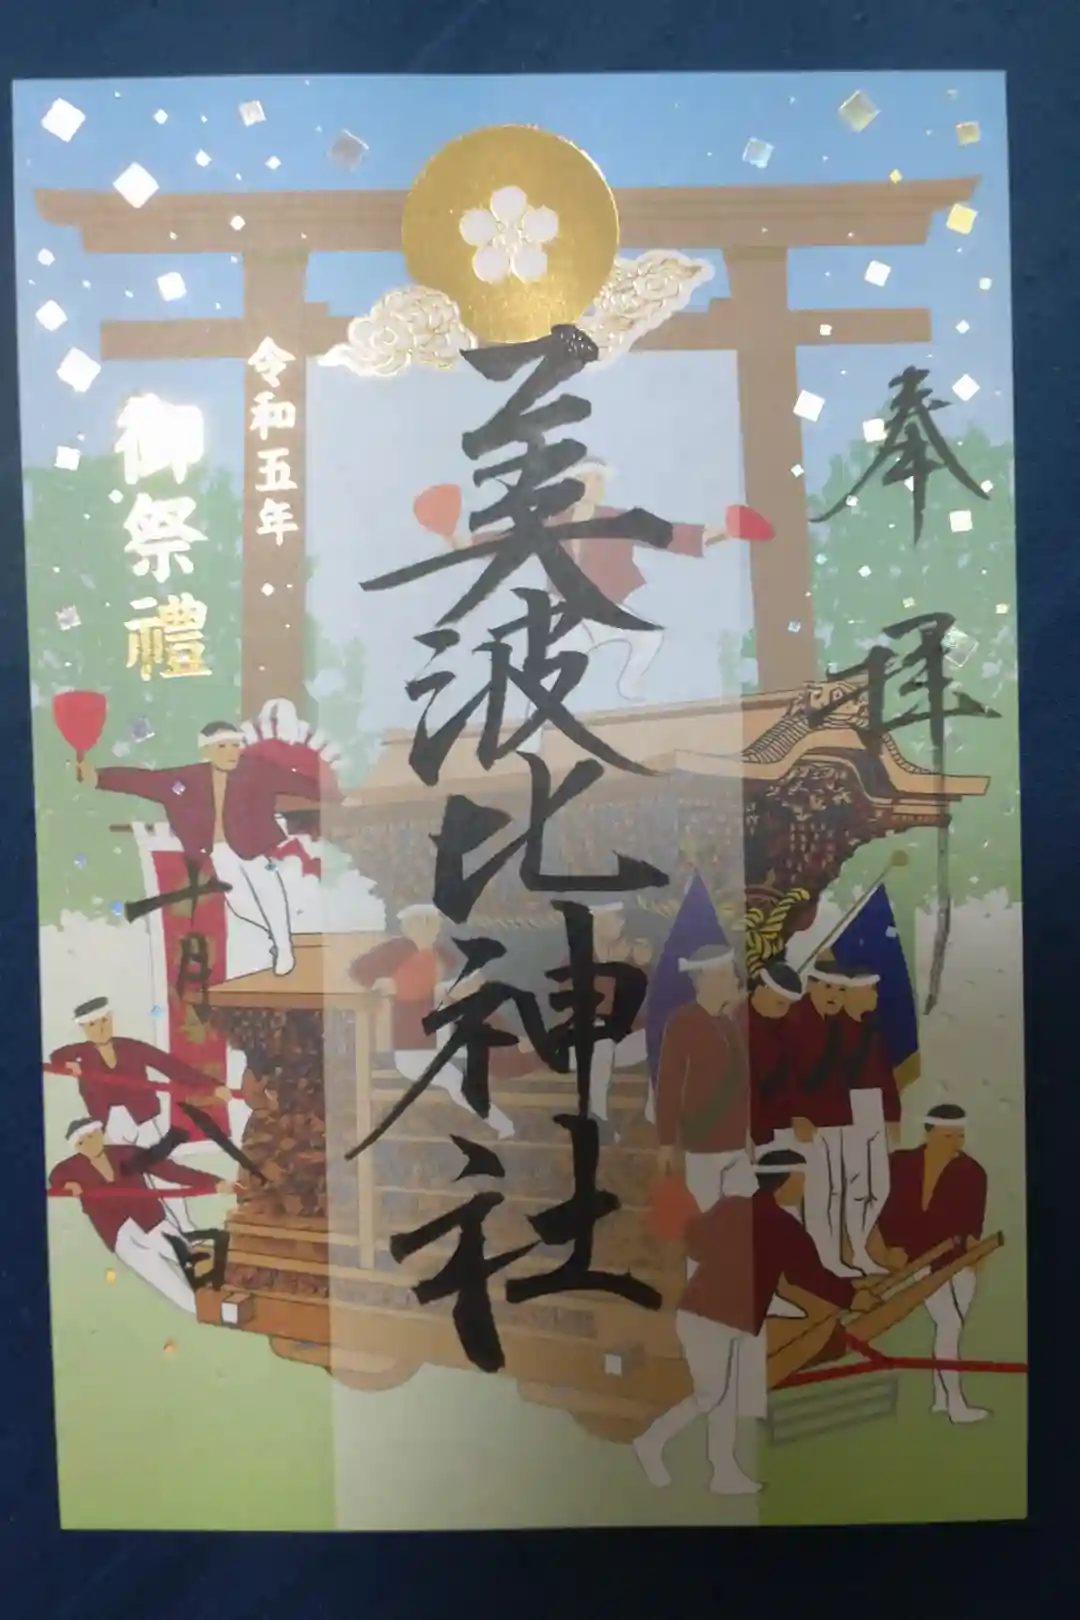 奉拝
美波比神社
令和五年
御祭禮
十月八日